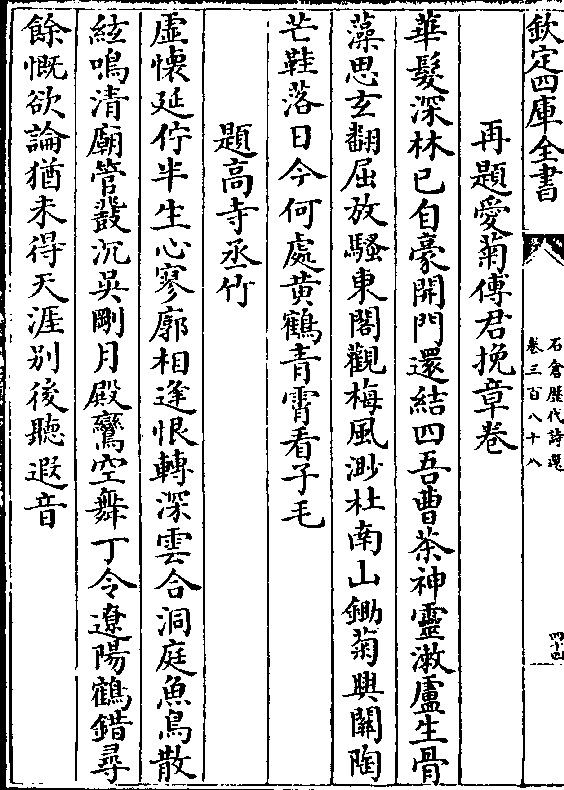 欽定四庫全書
石倉歷代詩選
卷三百八十八
四十四
再題愛菊傅君挽章卷
華髮深林已自豪開門還結四吾曹茶神靈漱盧生骨
藻思玄翻屈放騷東閣觀梅風渺杜南山鋤菊興關陶
芒鞋落日今何處黃鶴青霄看子毛
題高寺丞竹
虛懷延佇半生心寥廓相逢恨轉深雲合洞庭魚鳥散
絃鳴清廟管鼗沉吳剛月殿鸞空舞丁令遼陽鶴錯尋
餘慨欲論猶未得天涯别後聽遐音